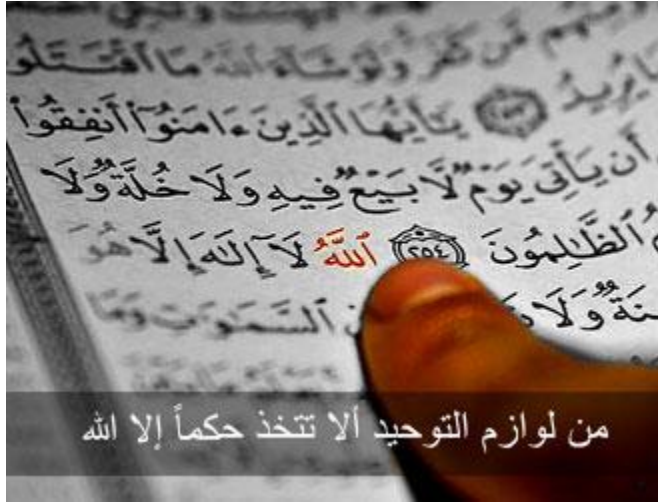 مِنْهُم مَّن كَفَرَ وَلَوْ شَاءَ ٱللَّهُ مَا ٱقْتَتَلُوا
يُرِيدُ يَٰٓأَيُّهَا ٱلَّذِينَ ءَامَنُوٓا۟ أَنفِقُوا۟
أَن يَأْتِىَ يَوْمٌ لَّا بَيْعٌ فِيهِ وَلَا خُلَّةٌ وَلَا
ٱلظَّٰلِمُونَ ٢٥٤ ٱللَّهُ لَآ إِلَٰهَ إِلَّا هُوَ
سِنَةٌ وَلَا ٱلسَّمَٰوَٰتِ وَمَا
من لوازم التوحيد ألا تتخذ حكماً إلا الله